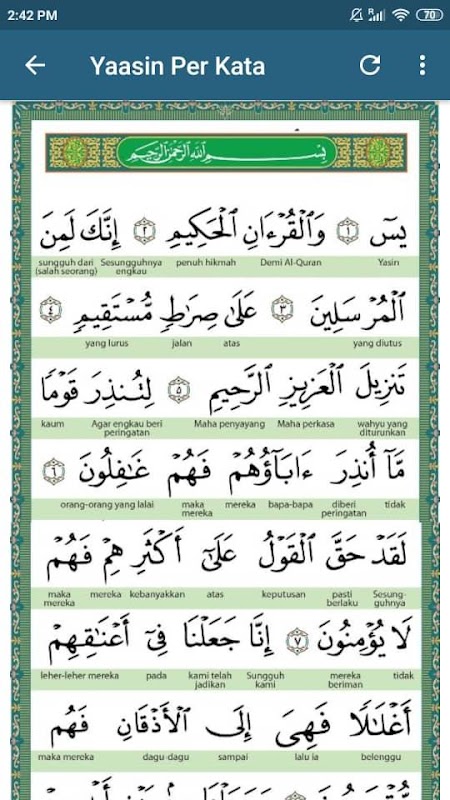 2:42 PM 70
Yaasin Per Kata
بِسْمِ ٱللَّهِ ٱلرَّحْمَٰنِ ٱلرَّحِيمِ
يسٓ ١ وَٱلْقُرْءَانِ ٱلْحَكِيمِ ٢ إِنَّكَ لَمِنَ
Yasin Demi Al-Quran penuh hikmah Sesungguhnya engkau sungguh dari (salah seorang)
ٱلْمُرْسَلِينَ ٣ عَلَىٰ صِرَٰطٍ مُّسْتَقِيمٍ ٤
yang diutus atas jalan yang lurus
تَنزِيلَ ٱلْعَزِيزِ ٱلرَّحِيمِ ٥ لِتُنذِرَ قَوْمًا
wahyu yang diturunkan Maha perkasa Maha penyayang Agar engkau beri peringatan kaum
مَّآ أُنذِرَ ءَابَآؤُهُمْ فَهُمْ غَٰفِلُونَ ٦
tidak diberi peringatan bapa-bapa mereka maka mereka orang-orang yang lalai
لَقَدْ حَقَّ ٱلْقَوْلُ عَلَىٰٓ أَكْثَرِهِمْ فَهُمْ
Sesung-guhnya pasti berlaku keputusan atas kebanyakkan mereka maka mereka
لَا يُؤْمِنُونَ ٧ إِنَّا جَعَلْنَا فِىٓ أَعْنَٰقِهِمْ
tidak mereka beriman Sungguh kami kami telah jadikan pada leher-leher mereka
أَغْلَٰلًا فَهِىَ إِلَى ٱلْأَذْقَانِ فَهُم
belenggu lalu ia sampai dagu-dagu maka mereka